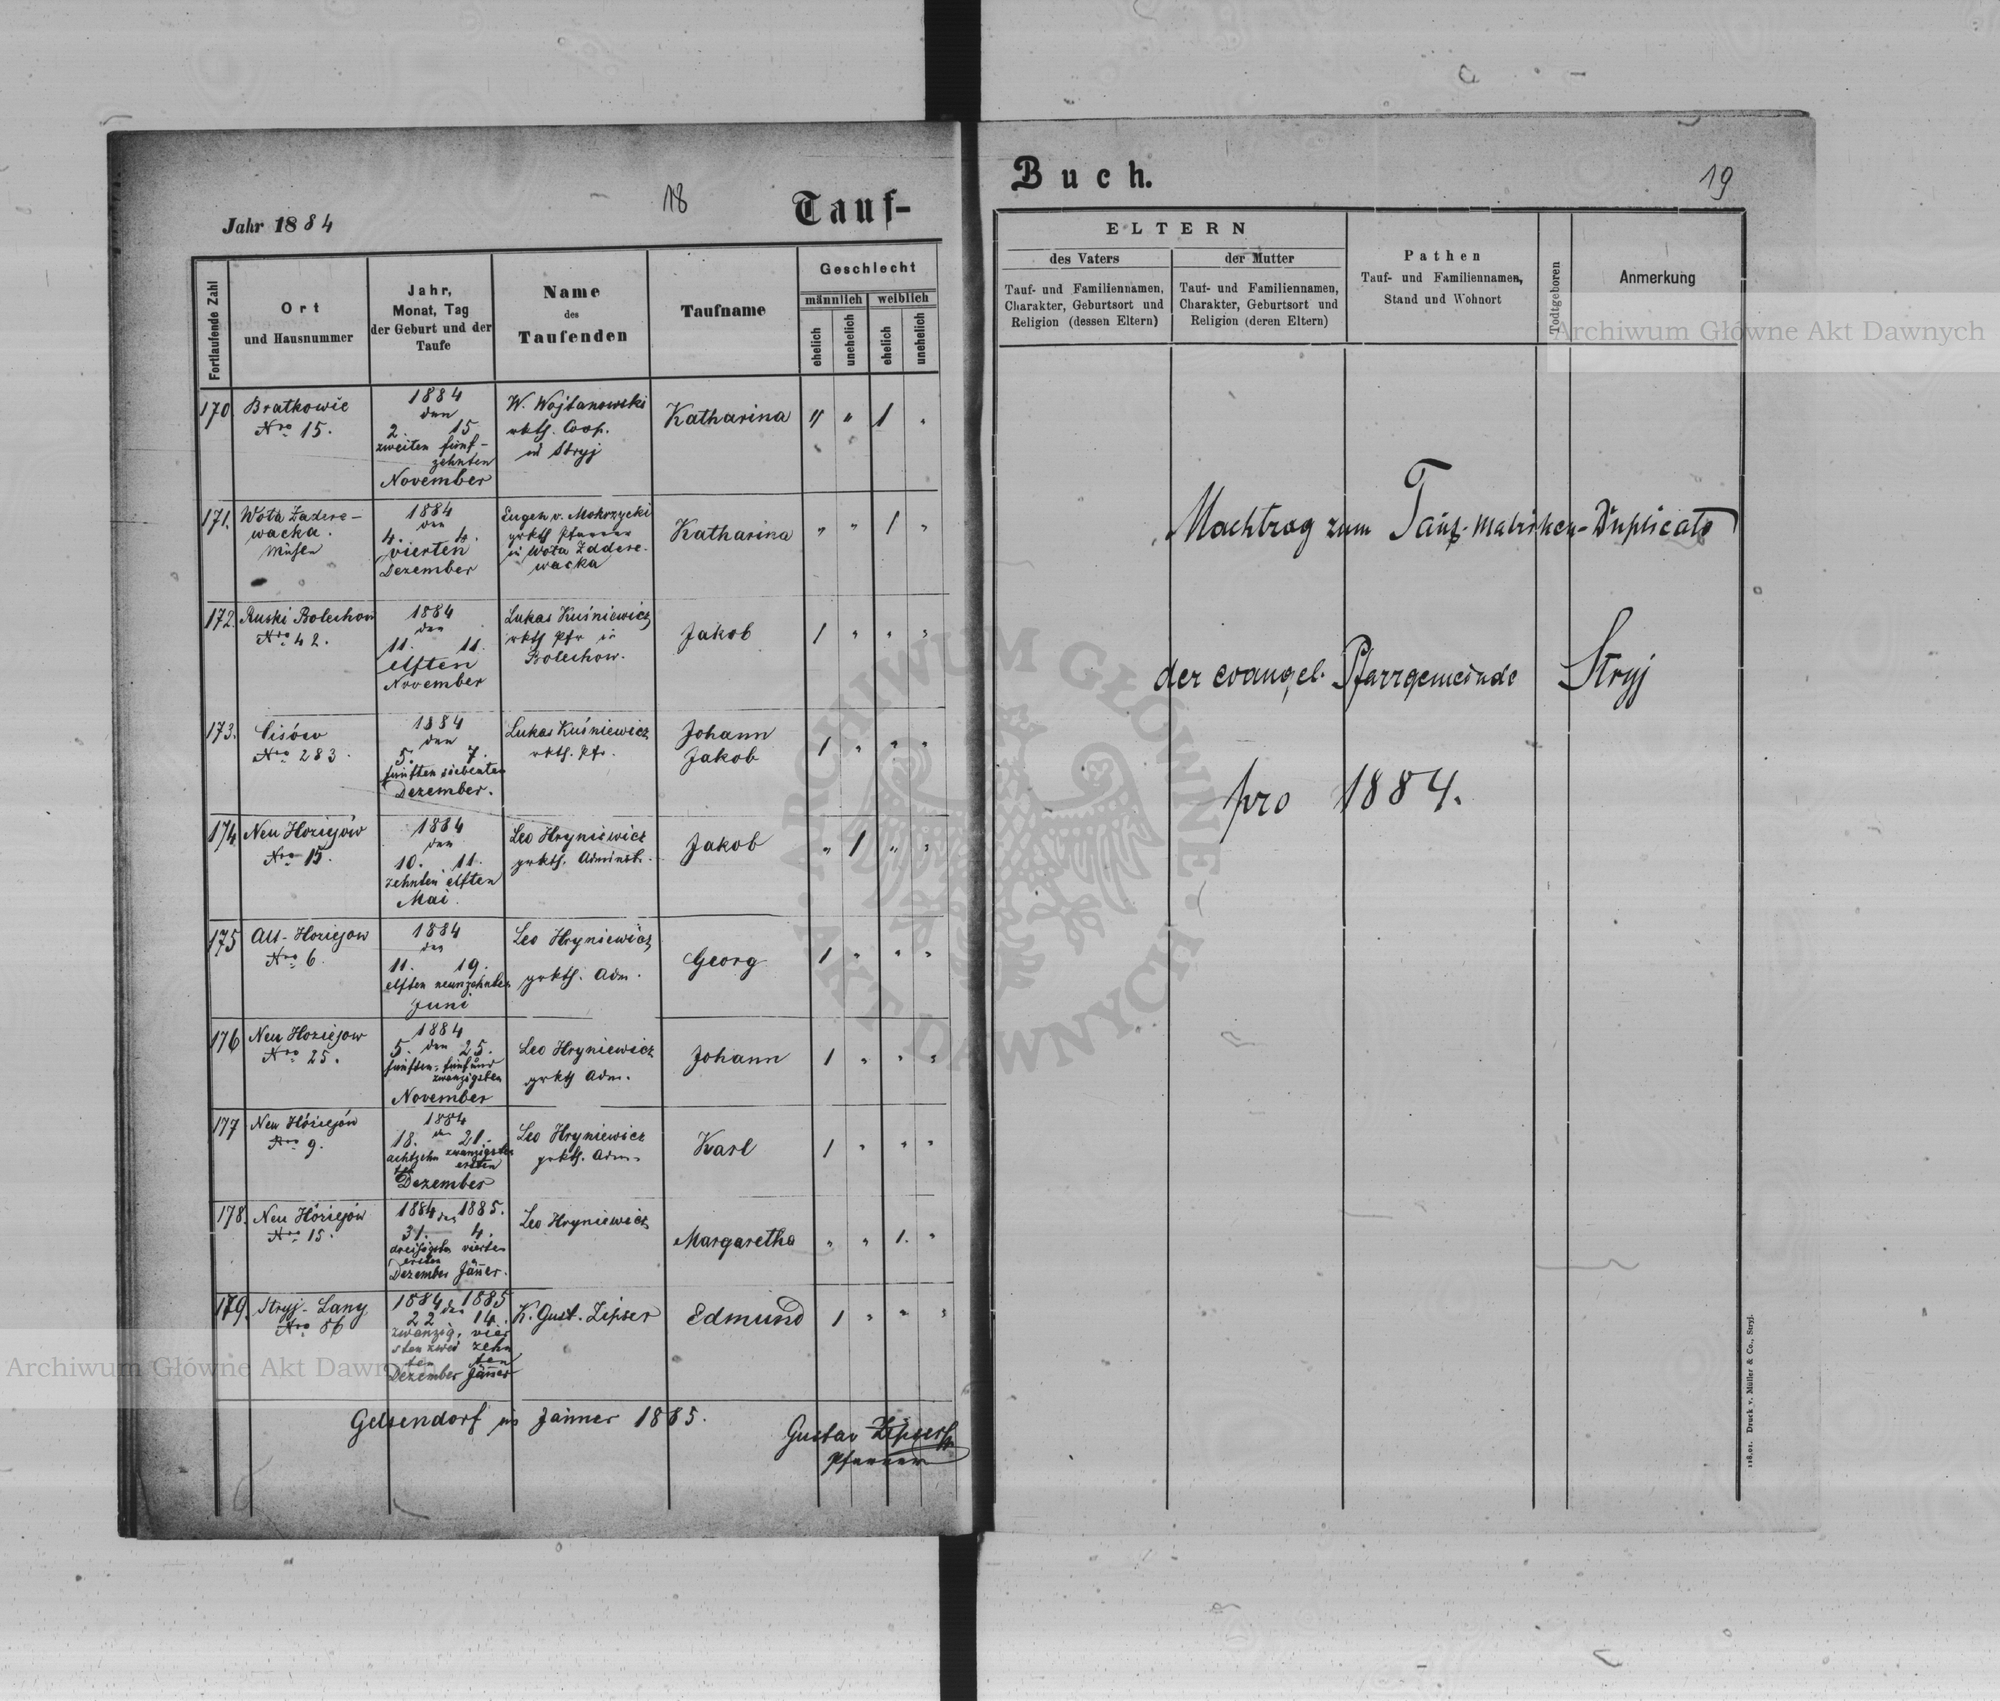 Jahr 1884
18
Tauf-
Fortlaufende Zahl
Ort
und Hausnummer
Jahr,
Monat, Tag
der Geburt und der
Taufe
Name
des
Taufenden
Taufname
Geschlecht
männlich weiblich
ehelich
unehelich
ehelich
unehelich
170 Bratkowie
Nro 15.
1884
den
2. 15
zweiten fünf-
zehnten
November
W. Wojtanowski
rkth. Coop.
in Stryj
Katharina
" " 1 "
171. Wola Zadere-
wacka.
1884
den
4. 4.
vierten
Dezember
Eugen v. Mokrzycki
grkth Pfarrer
in Wola Zadere-
wacka
Katharina
" " 1 "
172. Ruski Bolechow
Nro 42.
1884
den
11. 11.
elften
November
Lukas Kuśniewicz
rkth Pfr in
Bolechow.
Jakob
1 " " "
173. Cisów
Nro 283.
1884
den
5. 7.
fünften siebenten
Dezember.
Lukas Kuśniewicz
rkth. Pfr.
Johann
Jakob
1 " " "
174 Neu Hoziejów
Nro 15.
1884
den
10. 11.
zehnten elften
Mai.
Leo Hryniewicz
grkth. Adminst.
Jakob
" 1 " "
175 Alt-Hoziejow
Nro 6.
1884
den
11. 19.
elften neunzehnten
Juni
Leo Hryniewicz
grkth. Adm.
Georg
1 " " "
176 Neu Hoziejow
Nro 25.
1884
5. den 25.
fünften, fünfund
zwanzigsten
November
Leo Hryniewicz
grkth Adm.
Johann
1 " " "
177 Neu Hóziejów
Nro 9.
1884
18. den 21.
achtzehn zwanzigsten
ten ersten
Dezember
Leo Hryniewicz
grkth. Adm.
Karl
1 " " "
178. Neu Hóziejów
Nro 15.
1884 den 1885.
31. 4.
dreißigsten vierten
ersten
Dezember Jänner.
Leo Hryniewicz
Margaretha
" " 1. "
179. Stryj-Lany
Nro 56
1884 den 1885
22 14.
zwanzig. vier
sten zwei zehn
ten ten
Dezember Jänner
K. Gust. Zipser
Edmund
1 " " "
Gelsendorf im Jänner 1885.
Gustav Zipser
Pfarrer
Buch.
19
ELTERN
des Vaters
Tauf- und Familiennamen,
Charakter, Geburtsort und
Religion (dessen Eltern)
der Mutter
Tauf- und Familiennamen,
Charakter, Geburtsort und
Religion (deren Eltern)
Pathen
Tauf- und Familiennamen,
Stand und Wohnort
Todtgeboren
Anmerkung
Nachtrag zum Tauf-Matriken-Duplicate
der evangel. Pfarrgemeinde Stryj
pro 1884.
118,01. Druck v. Müller & Co., Stryj.
Archiwum Główne Akt Dawnych
Archiwum Główne Akt Dawnych
ARCHIWUM GŁÓWNE
AKT DAWNYCH